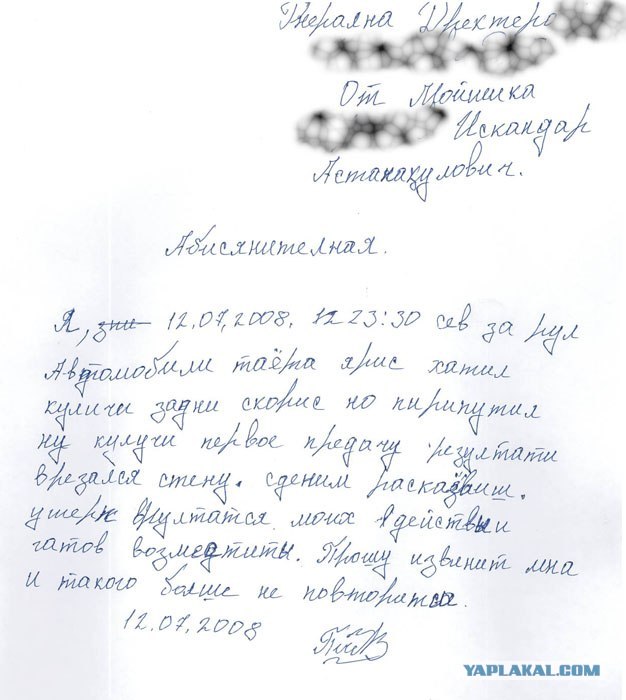 Генеряла Дректеро
От Мойшика
Искандар
Астанакулович.
Абисянителная.
Я, зни 12.07.2008. 12 23:30 сев за рул
Автомобили таёта ярис хатил
куличи задни скорис но пирипутил
ну кулучи первое предачу резултати
врезался стену. сденим
ушерп моих действи
гатов возмедтиты. Прошу извенит мна
и такого болше не повторится.
12.07.2008
YAPLAKAL.COM